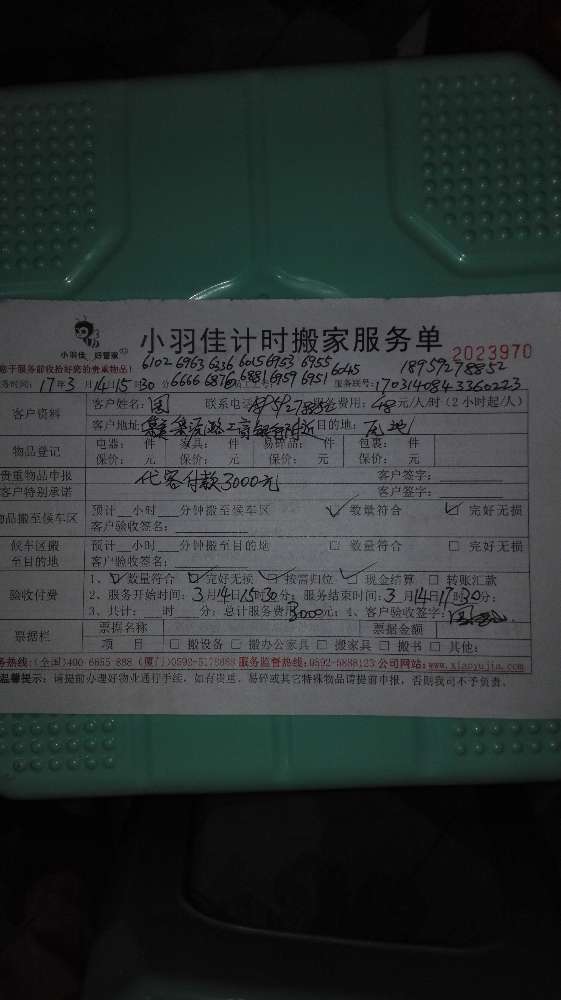 小羽佳 好管家
小羽佳计时搬家服务单
2023970
您于服务前收拾好您的贵重物品!
6102 6963 6236 6015 6953 6955
6045
18959278852
务时间:17年3月14日15时30分
6666 6876 6881 6959 6951
服务联号:170314084336 0223
客户资料
客户姓名:国 联系电话 服务费用:48元/人/时(2小时起/人)
客户地址: 目的地:
物品登记
电器: 件 家具: 件 易碎品: 件 包裹: 件
保价: 元 保价: 元 保价: 元 保价: 元
贵重物品申报
客户特别承诺
代客付款3000元
客户签字:
客户签字:
物品搬至候车区
预计__小时__分钟搬至候车区 ☑ 数量符合 ☑ 完好无损
客户验收签名:
候车区搬
至目的地
预计__小时__分钟搬至目的地 □ 数量符合 □ 完好无损
客户验收签名:
验收付费
1、☑数量符合 ☑完好无损 ☑按需归位 ☑现金结算 □ 转账汇款
2、服务开始时间:3月14日15时30分; 服务结束时间:3月14日17时30分;
3、共计: 时__分;总计服务费用3000元;4、客户验收签字:
票据栏
票据名称 票据金额
项 目 □ 搬设备 □ 搬办公家具 □ 搬家具 □ 搬书 □ 其他:
务热线:(全国)400 6655 888 (厦门)0592-5178068 服务监督热线:0592-5888123 公司网站:www.xiaoyujia.com
温馨提示:请提前办理好物业通行手续,如有贵重、易碎或其它特殊物品请提前申报,否则我司不予负责。